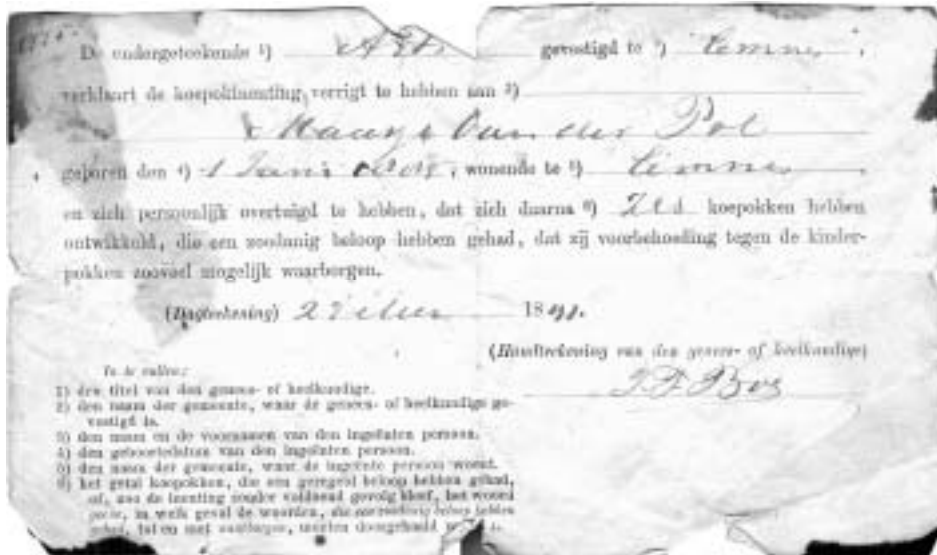 De ondergeteekende 1) Arts gevestigd te 2) Eemnes,
verklaart de koepokinenting verrigt te hebben aan 3)
Maagje Van der Pol
geboren den 4) 1 Juni, wonende te 5) Eemnes
en zich persoonlijk overtuigd te hebben, dat zich daarna 6) Zes koepokken hebben
ontwikkeld, die een zoodanig beloop hebben gehad, dat zij voorbehoeding tegen de kinder-
pokken zooveel mogelijk waarborgen.
(Dagteekening) 1891.
(Handteekening van den genees- of heelkundige)
Bos
In te vullen:
1) den titel van den genees- of heelkundige.
2) den naam der gemeente, waar de genees- of heelkundige ge-
vestigd is.
3) den naam en de voornamen van den ingeënten persoon.
4) den geboortedatum van den ingeënten persoon.
5) den naam der gemeente, waar de ingeënte persoon woont.
6) het getal koepokken, die een geregeld beloop hebben gehad,
of, zoo de inenting zonder voldoend gevolg bleef, het woord
geene, in welk geval de woorden, die een zoodanig beloop hebben
gehad, tot en met waarborgen, moeten doorgehaald